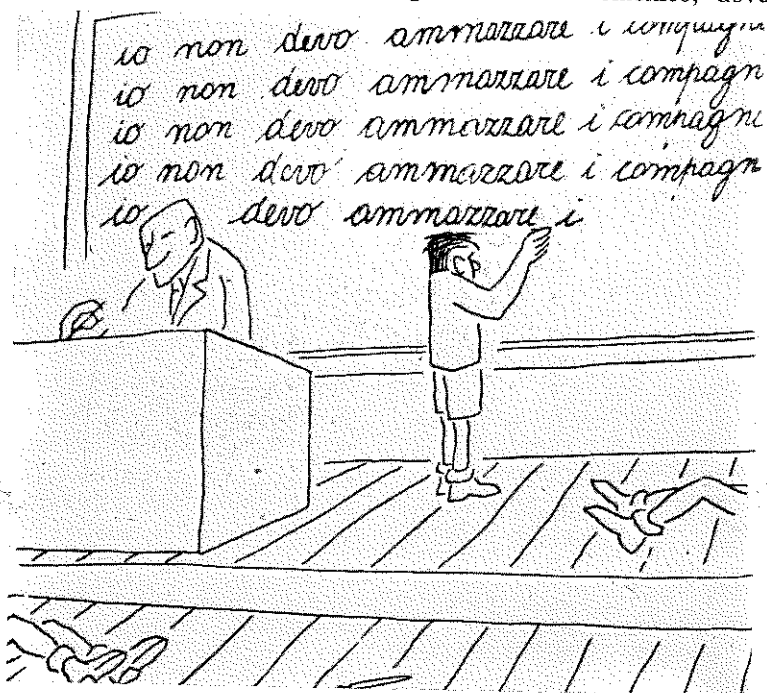 io non devo ammazzare i compagni
io non devo ammazzare i compagn
io non devo ammazzare i compagni
io non devo ammazzare i compagn
io devo ammazzare i